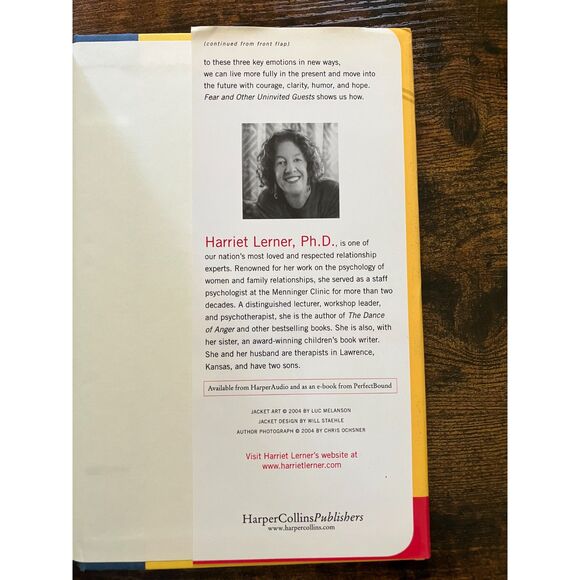 (continued from front flap)
to these three key emotions in new ways,
we can live more fully in the present and move into
the future with courage, clarity, humor, and hope.
Fear and Other Uninvited Guests shows us how.
Harriet Lerner, Ph.D., is one of
our nation's most loved and respected relationship
experts. Renowned for her work on the psychology of
women and family relationships, she served as a staff
psychologist at the Menninger Clinic for more than two
decades. A distinguished lecturer, workshop leader,
and psychotherapist, she is the author of The Dance
of Anger and other bestselling books. She is also, with
her sister, an award-winning children's book writer.
She and her husband are therapists in Lawrence,
Kansas, and have two sons.
Available from HarperAudio and as an e-book from PerfectBound
JACKET ART © 2004 BY LUC MELANSON
JACKET DESIGN BY WILL STAEHLE
AUTHOR PHOTOGRAPH © 2004 BY CHRIS OCHSNER
Visit Harriet Lerner's website at
www.harrietlerner.com
HarperCollinsPublishers
www.harpercollins.com